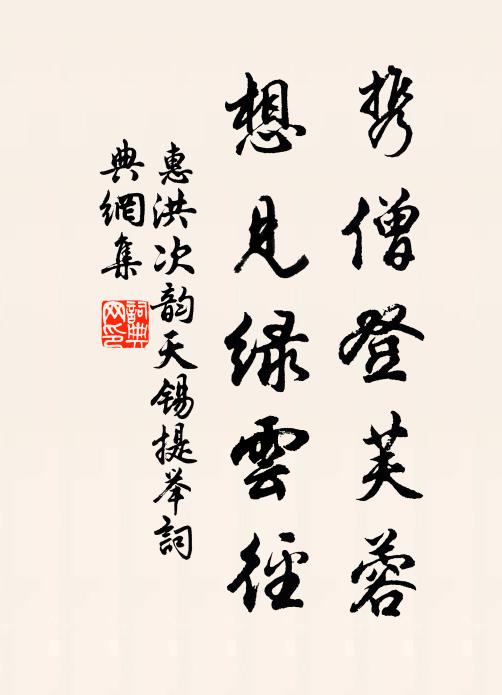 携僧登芙蓉
想見緑雲徑
惠洪次韵天錫提举詞
典網集
詞典網印